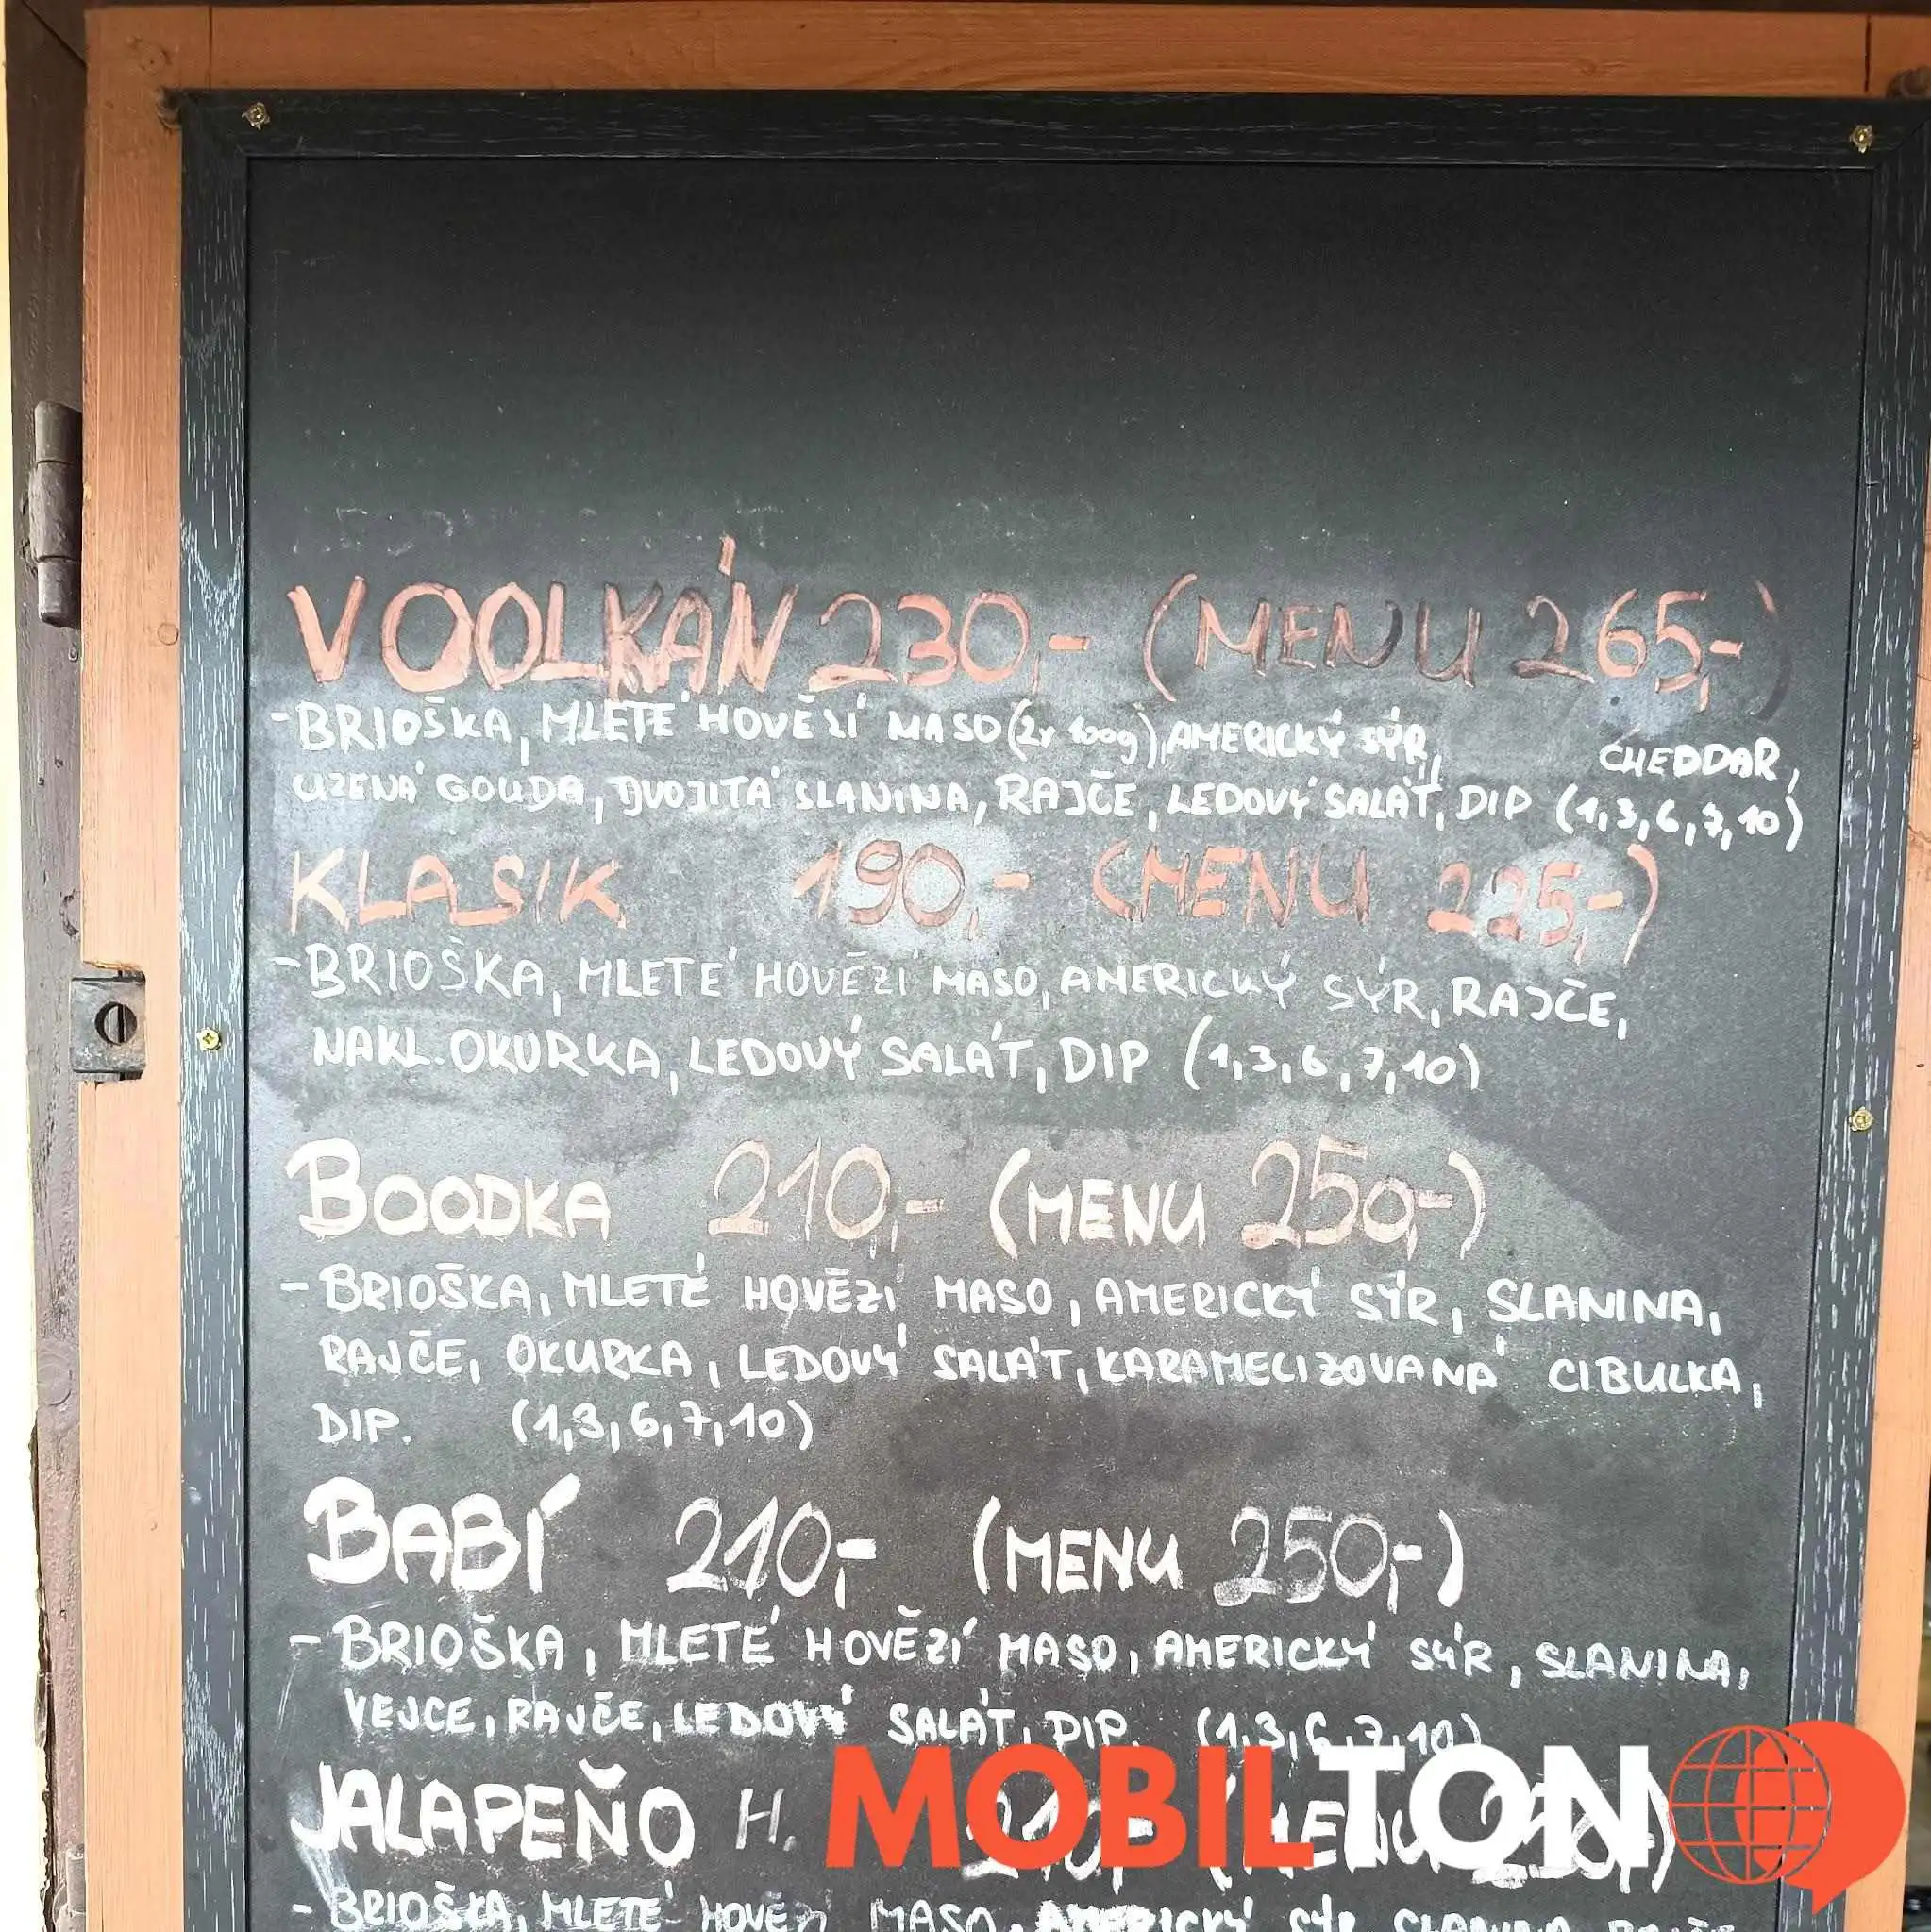 VOOLKÁN 230,- (MENU 265,-)
-BRIOŠKA, MLETÉ HOVĚZÍ MASO (2x 100g), AMERICKÝ SÝR, CHEDDAR,
UZENÁ GOUDA, DVOJITÁ SLANINA, RAJČE, LEDOVÝ SALÁT, DIP (1,3,6,7,10)
KLASIK 190,- (MENU 225,-)
-BRIOŠKA, MLETÉ HOVĚZÍ MASO, AMERICKÝ SÝR, RAJČE,
NAKL. OKURKA, LEDOVÝ SALÁT, DIP (1,3,6,7,10)
BOODKA 210,- (MENU 250,-)
- BRIOŠKA, MLETÉ HOVĚZÍ MASO, AMERICKÝ SÝR, SLANINA,
RAJČE, OKURKA, LEDOVÝ SALÁT, KARAMELIZOVANÁ CIBULKA,
DIP. (1,3,6,7,10)
BABÍ 210,- (MENU 250,-)
- BRIOŠKA, MLETÉ HOVĚZÍ MASO, AMERICKÝ SÝR, SLANINA,
VEJCE, RAJČE, LEDOVÝ SALÁT, DIP. (1,3,6,7,10)
JALAPEŇO H. 210,- (MENU
MOBILTON
- BRIOŠKA, MLETÉ HOVĚZÍ MASO, AMERICKÝ SÝR, SLANINA, RAJČE